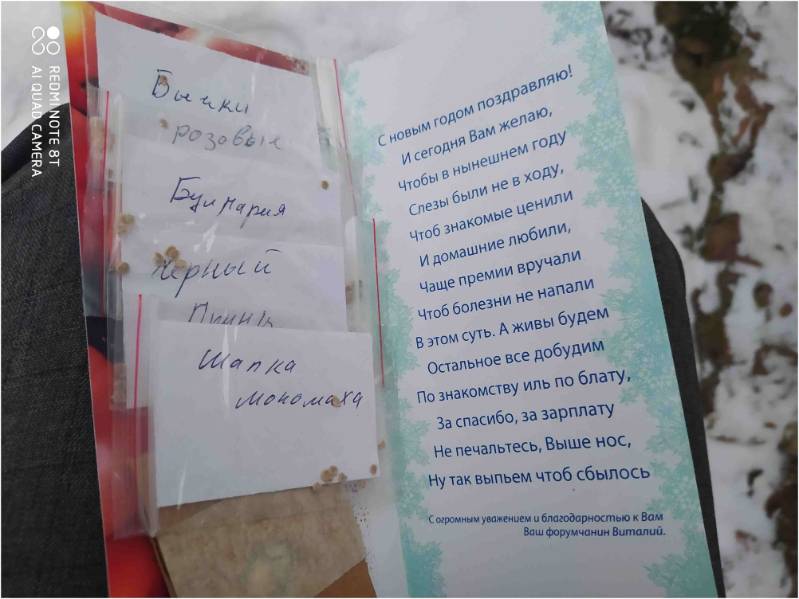 REDMI NOTE 8T
AI QUAD CAMERA
Бычки
розовые
Булгария
черный
Шапка
мономаха
С новым годом поздравляю!
И сегодня Вам желаю,
Чтобы в нынешнем году
Слезы были не в ходу,
Чтоб знакомые ценили
И домашние любили,
Чаще премии вручали
Чтоб болезни не напали
В этом суть. А живы будем
Остальное все добудим
По знакомству иль по блату,
За спасибо, за зарплату
Не печальтесь, Выше нос,
Ну так выпьем чтоб сбылось
С огромным уважением и благодарностью к Вам
Ваш форумчанин Виталий.